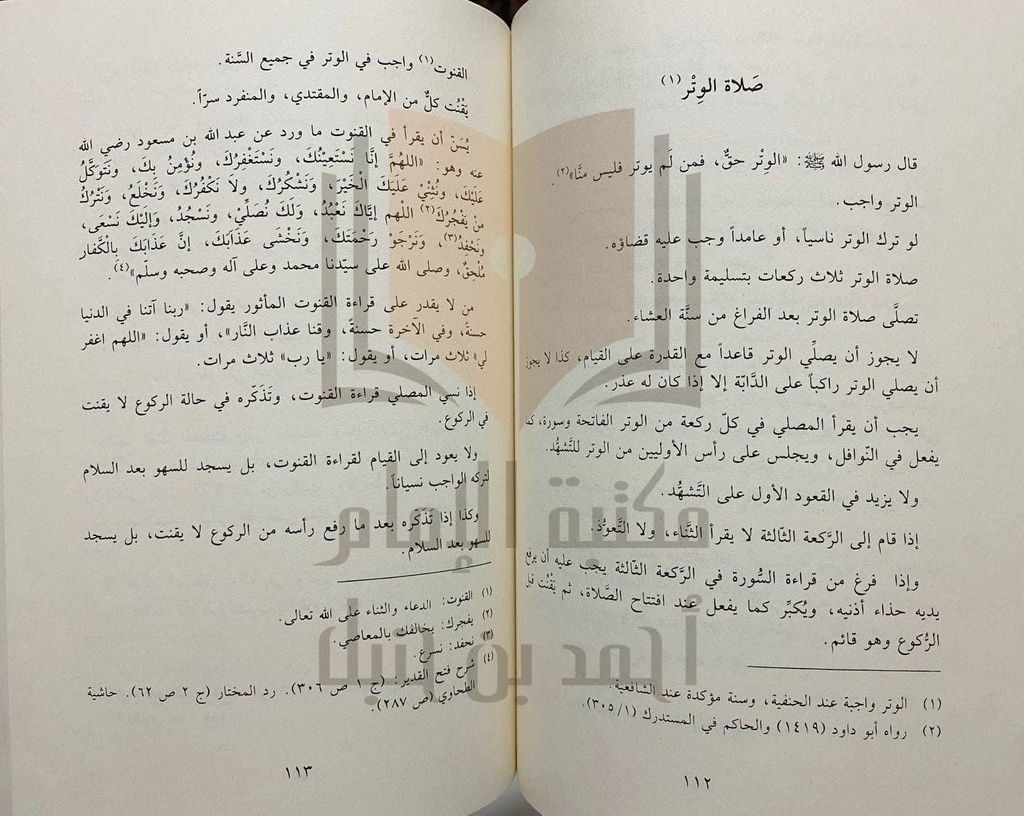 صَلاة الوِتْر (١)
قال رسول الله ﷺ: «الوِتْر حقٌّ، فمن لَم يوتر فليس منَّا»(٢).
الوتر واجب.
لو ترك الوتر ناسياً، أو عامداً وجب عليه قضاؤه.
صلاة الوتر ثلاث ركعات بتسليمة واحدة.
تصلَّى صلاة الوتر بعد الفراغ من سنَّة العشاء.
لا يجوز أن يصلِّي الوتر قاعداً مع القدرة على القيام، كذا لا يجوز
أن يصلي الوتر راكباً على الدَّابّة إلا إذا كان له عذر.
يجب أن يقرأ المصلي في كلّ ركعة من الوتر الفاتحة وسورة، كما
يفعل في النّوافل، ويجلس على رأس الأوليين من الوتر للتَّشهُّد.
ولا يزيد في القعود الأول على التَّشهُّد.
إذا قام إلى الرَّكعة الثالثة لا يقرأ الثَّناء، ولا التَّعوُّذ.
وإذا فرغ من قراءة السُّورة في الرَّكعة الثّالثة يجب عليه أن يرفع
يديه حذاء أذنيه، ويُكبِّر كما يفعل عند افتتاح الصَّلاة، ثم يَقْنُت قبل
الرُّكوع وهو قائم.
(١) الوتر واجبة عند الحنفية، وسنة مؤكدة عند الشافعية.
(٢) رواه أبو داود (١٤١٩) والحاكم في المستدرك (٣٠٥/١).
١١٢
القنوت(١) واجب في الوتر في جميع السَّنة.
يَقْنُت كلٌّ من الإمام، والمقتدي، والمنفرد سرّاً.
يُسَنّ أن يقرأ في القنوت ما ورد عن عبد الله بن مسعود رضي الله
عنه وهو: «اللهُمَّ إنَّا نَسْتَعِيْنُكَ، ونَسْتَغْفِرُكَ، ونُؤْمِنُ بِكَ، ونَتَوَكَّلُ
عَلَيْكَ، ونُثْنِيْ عَلَيْكَ الْخَيْرَ، ونَشْكُرُكَ، ولاَ نَكْفُرُكَ، ونَخْلَعُ، ونَتْرُكُ
مَنْ يَفْجُرُكَ(٢) اللهم إيَّاكَ نَعْبُدُ، ولَكَ نُصَلِّيْ، ونَسْجُدُ، وإليْكَ نَسْعَى،
ونَحْفِدُ(٣)، ونَرْجَوْ رَحْمَتَكَ، ونَخْشَى عَذَابَكَ، إنَّ عَذَابَكَ بِالْكَفَّار
مُلْحِقٌ، وصلى الله على سيّدنا محمد وعلى آله وصحبه وسلّم»(٤).
من لا يقدر على قراءة القنوت المأثور يقول: «ربنا آتنا في الدنيا
حسنةً، وفي الآخرة حسنةً، وقنا عذاب النَّار»، أو يقول: «اللهم اغفر
لي» ثلاث مرات، أو يقول: «يا رب» ثلاث مرات.
إذا نسي المصلي قراءة القنوت، وتَذَكّره في حالة الركوع لا يقنت
في الركوع.
ولا يعود إلى القيام لقراءة القنوت، بل يسجد للسهو بعد السلام
لتركه الواجب نسياناً.
وكذا إذا تَذَكّره بعد ما رفع رأسه من الركوع لا يقنت، بل يسجد
للسهو بعد السلام.
(١) القنوت: الدعاء والثناء على الله تعالى.
(٢) يفجرك: يخالفك بالمعاصي.
(٣) نحفد: نسرع.
(٤) شرح فتح القدير: (ج ١ ص ٣٠٦). رد المختار (ج ٢ ص ٦٢). حاشية
الطحاوي (ص ٢٨٧).
١١٣
مكتبة الإمام
أحمد بن حنبل